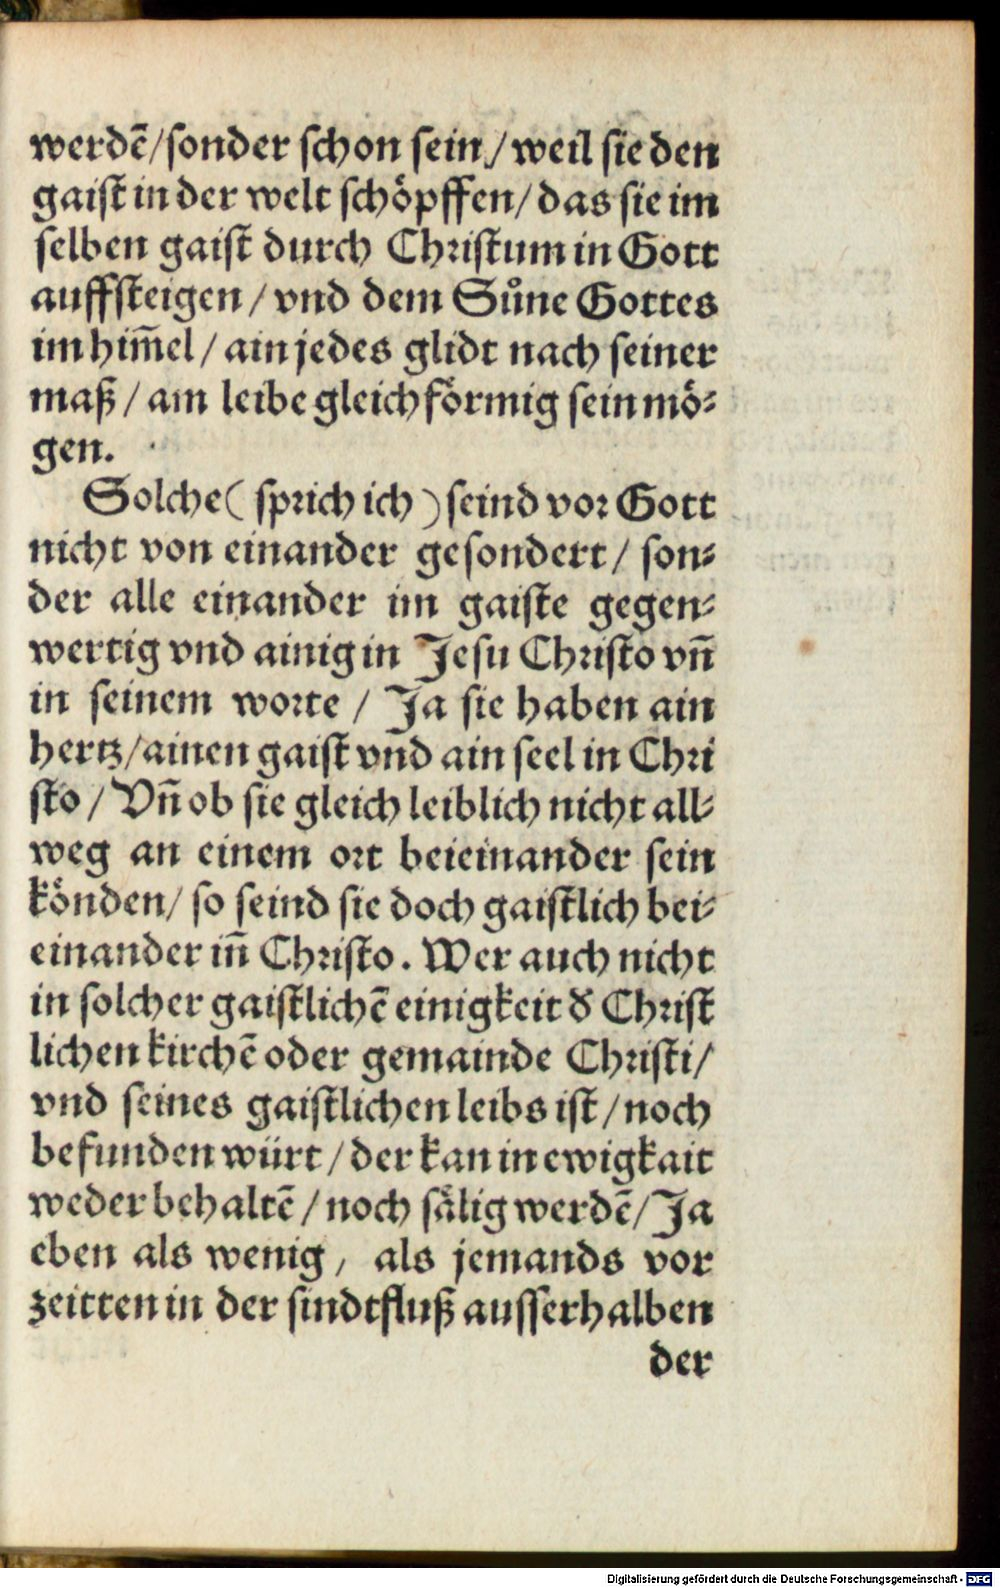 werdē/sonder schon sein/ weil sie den
gaist in der welt schöpffen/ das sie im
selben gaist durch Christum in Gott
auffsteigen / vnd dem Sůne Gottes
im him̄el / ain jedes glidt nach seiner
maß / am leibe gleichförmig sein mö⸗
gen.
Solche ( sprich ich ) seind vor Gott
nicht von einander gesondert / son⸗
der alle einander im gaiste gegen⸗
wertig vnd ainig in Jesu Christo vn̄
in seinem worte / Ja sie haben ain
hertz/ainen gaist vnd ain seel in Chri
sto / Vn̄ ob sie gleich leiblich nicht all⸗
weg an einem ort beieinander sein
könden/ so seind sie doch gaistlich bei⸗
einander in̄ Christo. Wer auch nicht
in solcher gaistlichē einigkeit d̕ Christ
lichen kirchē oder gemainde Christi/
vnd seines gaistlichen leibs ist / noch
befunden würt / der kan in ewigkait
weder behaltē / noch sälig werdē/ Ja
eben als wenig / als jemands vor
zeitten in der sindtfluß ausserhalben
der
Digitalisierung gefördert durch die Deutsche Forschungsgemeinschaft - DFG